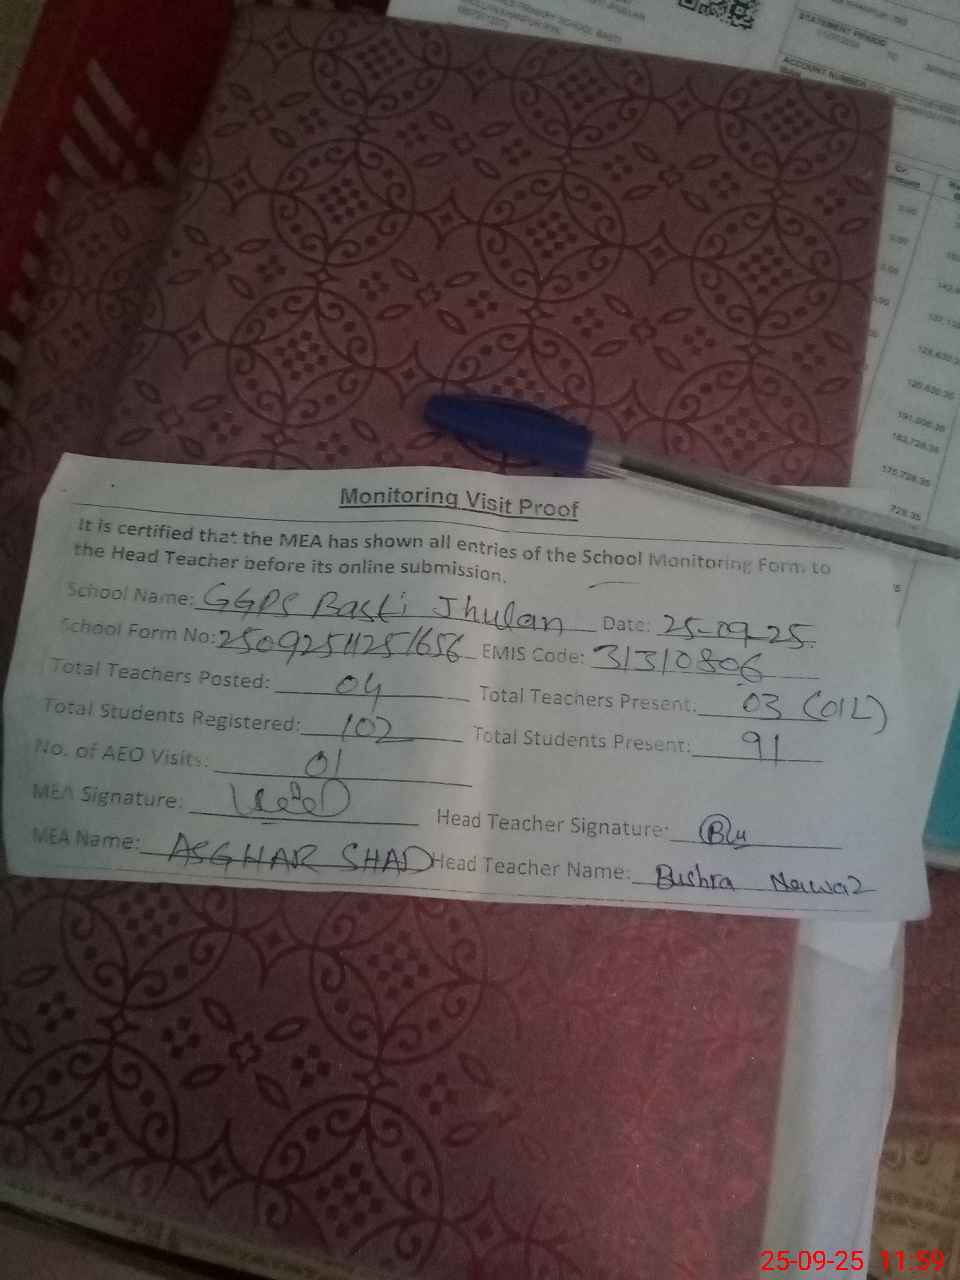 STATEMENT PERIOD
TO
ACCOUNT NUMBER
128,630.35
120,630.35
191,006.35
183,728.35
175,728.35
728.35
Monitoring Visit Proof
It is certified that the MEA has shown all entries of the School Monitoring Form to
the Head Teacher before its online submission.
School Name: GGPS Basti Jhulan Date: 25-09-25.
School Form No: 25092511251656 EMIS Code: 31310806
Total Teachers Posted: 04 Total Teachers Present: 03 (01L)
Total Students Registered: 102 Total Students Present: 91
No. of AEO Visits: 01
MEA Signature: Head Teacher Signature:
MEA Name: ASGHAR SHAD Head Teacher Name: Bushra Nawaz
25-09-25 11:59